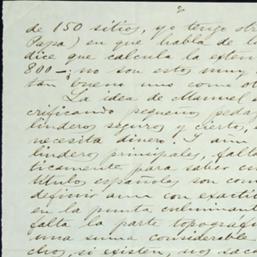 2
de 150 sitios, y yo tengo otro
Papa) en que habla de la
dice que calcula la exten
800 -; no son estos muy
tan bueno uno como ot
La idea de Manuel s
crificando pequeños peda
linderos seguros y cierto, s
necesita dinero. I aun
linderos principales, falta
ticamente para saber cu
títulos españoles son co
definir aun con exacti
en la punta culminan
falta la parte topográf
una suma considerable
dros, si existen, nos saca